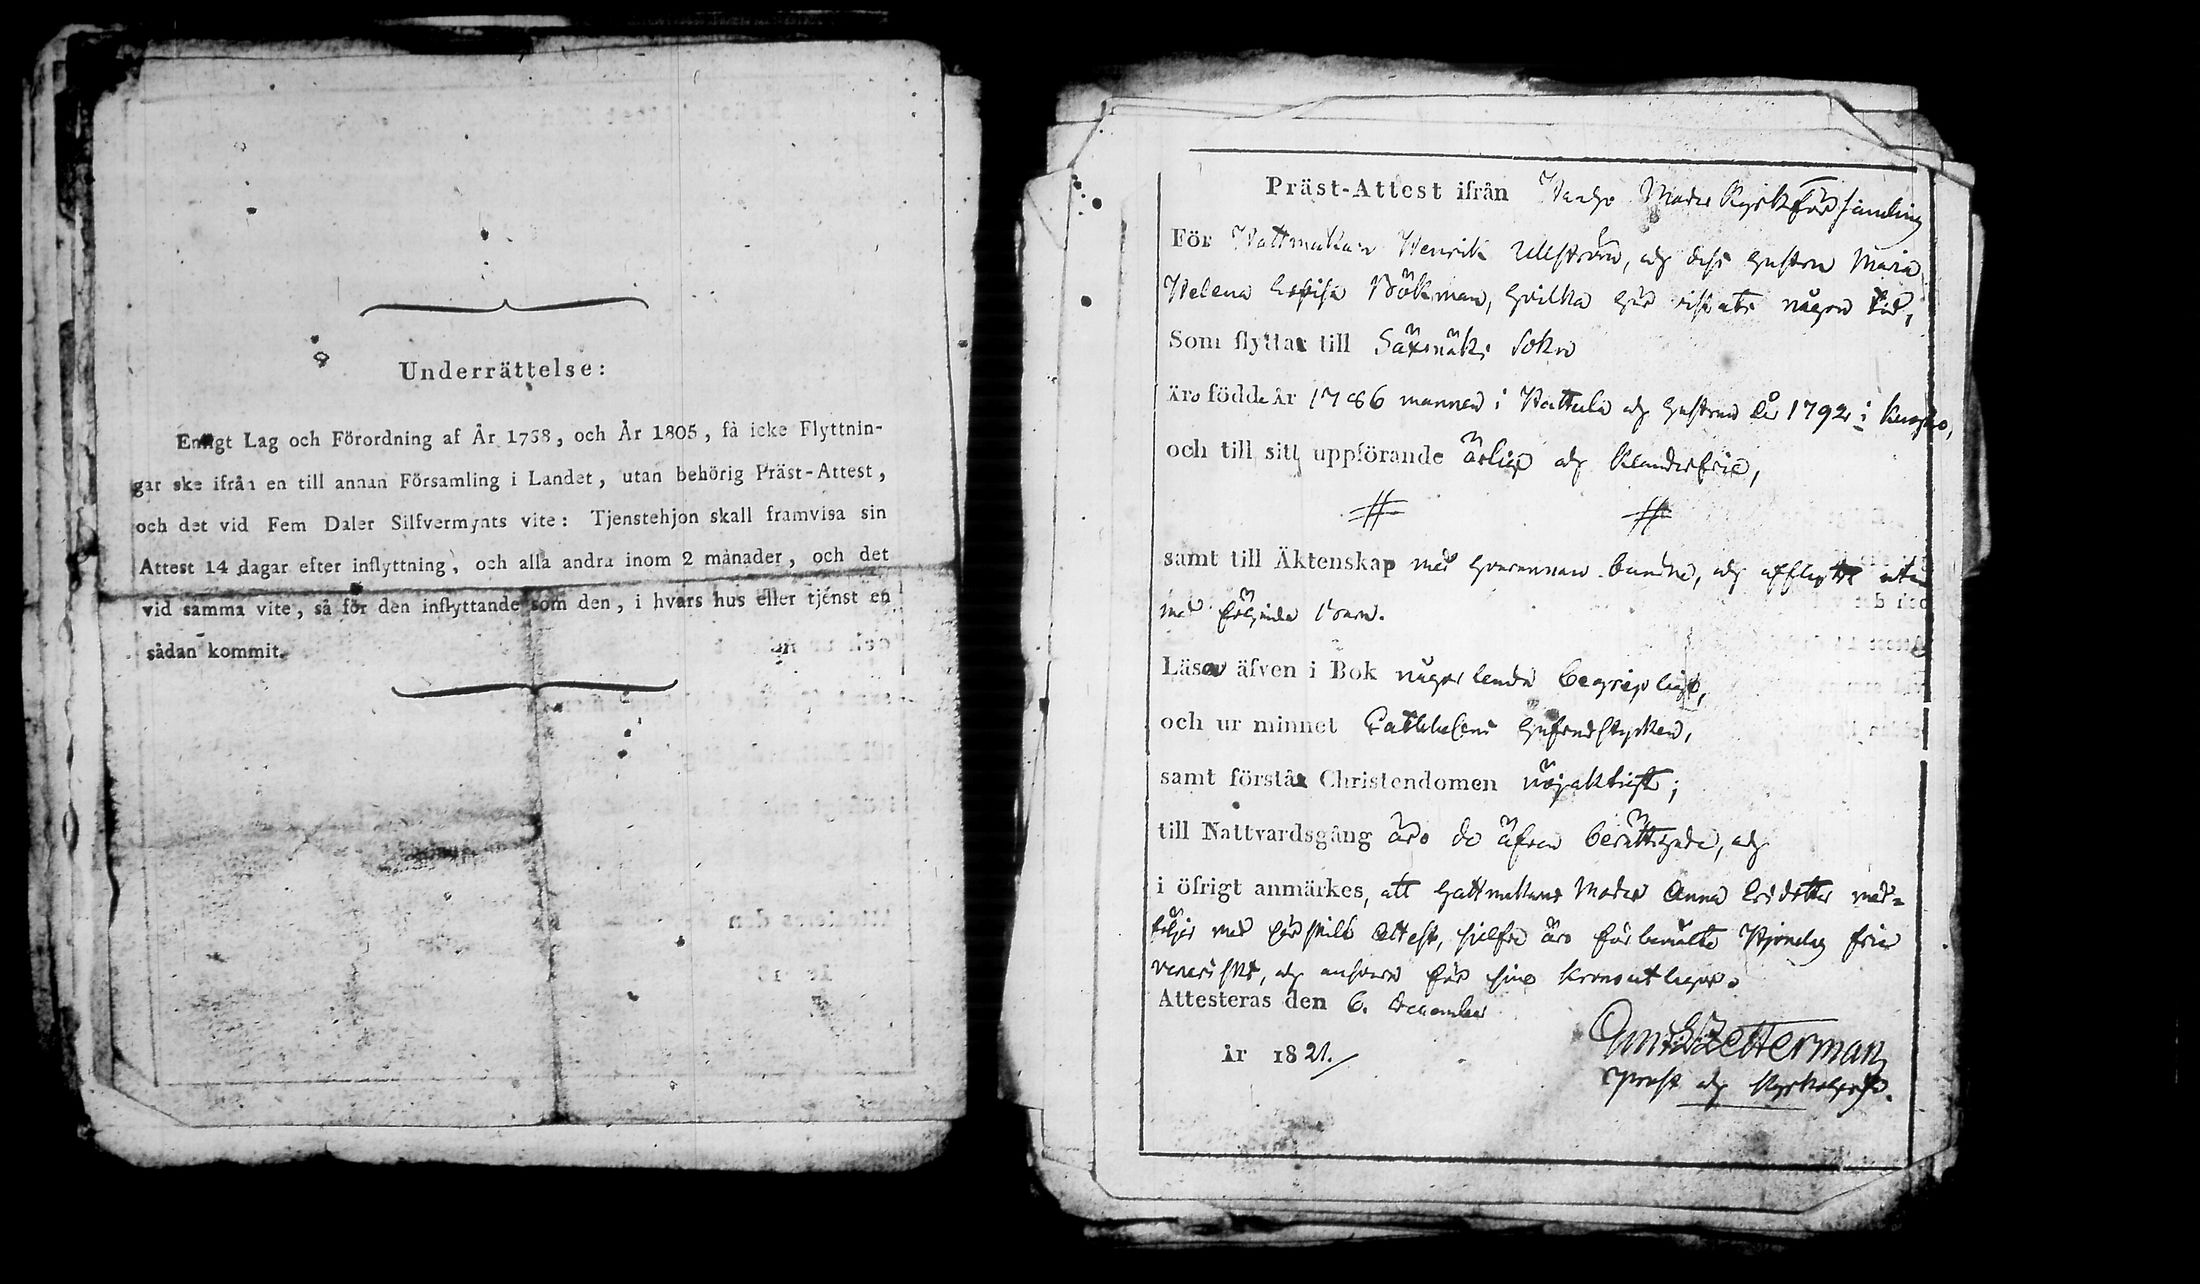 Underrättelse:
Enligt Lag och Förordning af År 1738, och År 1805, få icke Flyttnin-
gar ske ifrån en till annan Församling i Landet, utan behörig Präst-Attest,
och det vid Fem Daler Silfvermynts vite: Tjenstehjon skall framvisa sin
Attest 14 dagar efter inflyttning, och alla andra inom 2 månader, och det
vid samma vite, så för den inflyttande som den, i hvars hus eller tjenst en
sådan kommit.
Präst-Attest ifrån Moder Kyrkoförsamling
För Hattmakar Henrik Ullström, och dess hustru Maria
Helena Bökman, hvilka här vistats någon tid,
Som flyttar till Säxmäki Sokn
äro födde år 1786 mannen i Hattula och hustrun år 1792 i
och till sitt uppförande ärlige och klanderfrie,
samt till Äktenskap med hvarannan bundne, och afflytta utan
med följande barn.
Läsa äfven i Bok någorlunda begripligt,
och ur minnet Cathkesens hufvudstycken,
samt förstå Christendomen nöjaktigt;
till Nattvardsgång äro de äfven berättigade, och
i öfrigt anmärkes, att hattmakarens Moder Anna med-
följer med särskild attest, sjelfve äro för frie
veneriskt, och ansvara för sine Kronoutlagor.
Attesteras den 6. December
år 1821.
Zetterman
Prost och Kyrkoherde.